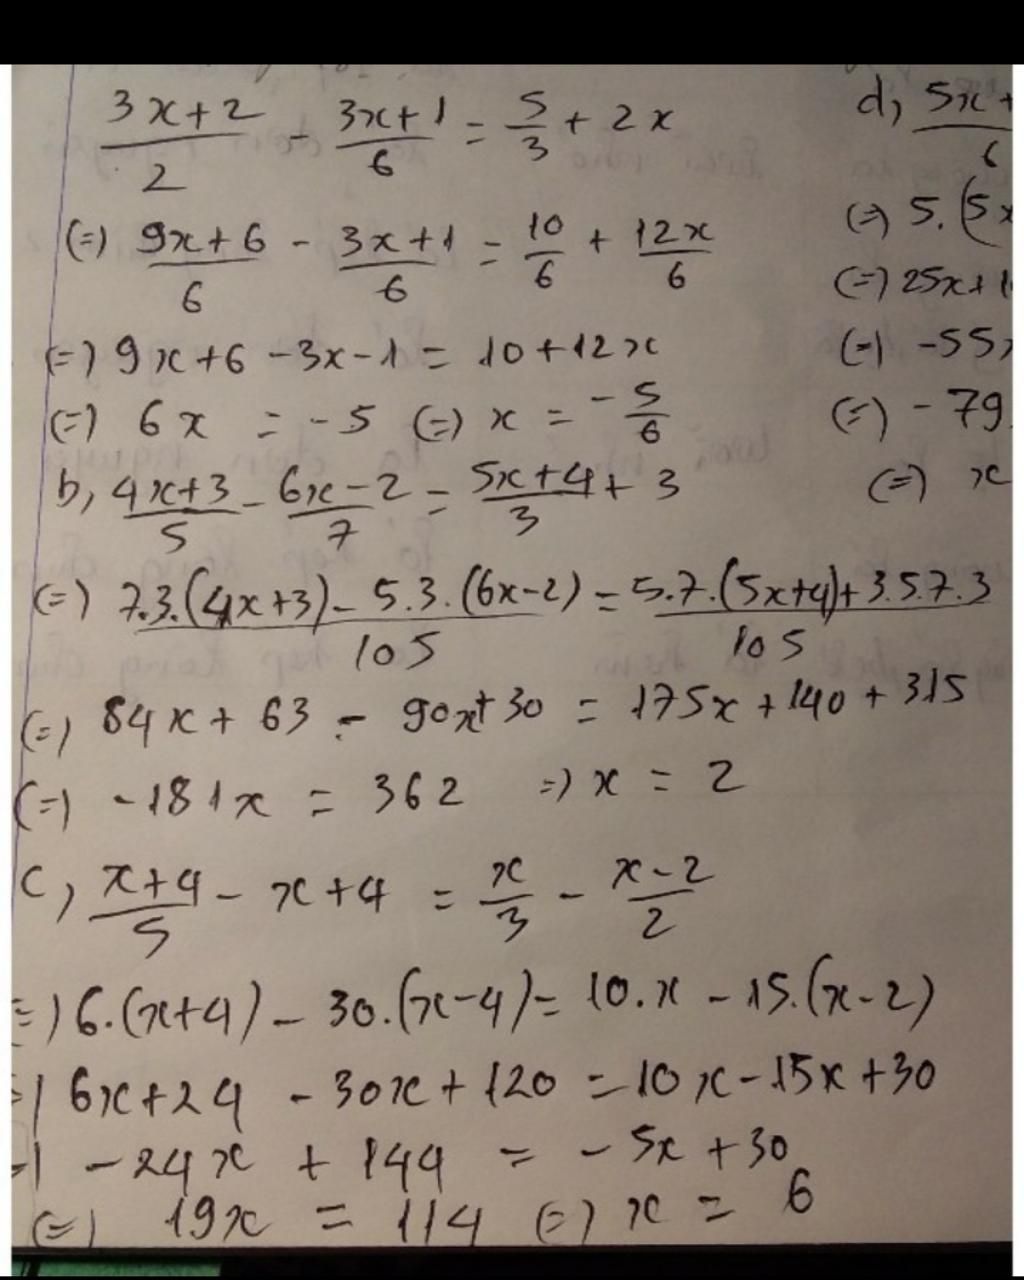 3x+2/2 - 3x+1/6 = 5/3 + 2x
(=) 9x+6/6 - 3x+1/6 = 10/6 + 12x/6
(=) 9x+6 -3x-1 = 10+12x
(=) 6x = -5 (=) x = -5/6
b, 4x+3/5 - 6x-2/7 = 5x+4/3 + 3
(=) 7.3.(4x+3) - 5.3.(6x-2)/105 = 5.7.(5x+4)+3.5.7.3/105
(=) 84x + 63 - 90x+30 = 175x+140+315
(=) -181x = 362 =) x = 2
c, x+4/5 - x+4 = x/3 - x-2/2
=) 6.(x+4) - 30.(x-4) = 10.x - 15.(x-2)
=) 6x+24 - 30x+120 = 10x-15x+30
=) -24x + 144 = -5x+30
(=) 19x = 114 (=) x = 6
d, 5x+/6
(=) 5.(5x
(=) 25x+1
(=) -55x
(=) -79
(=) x